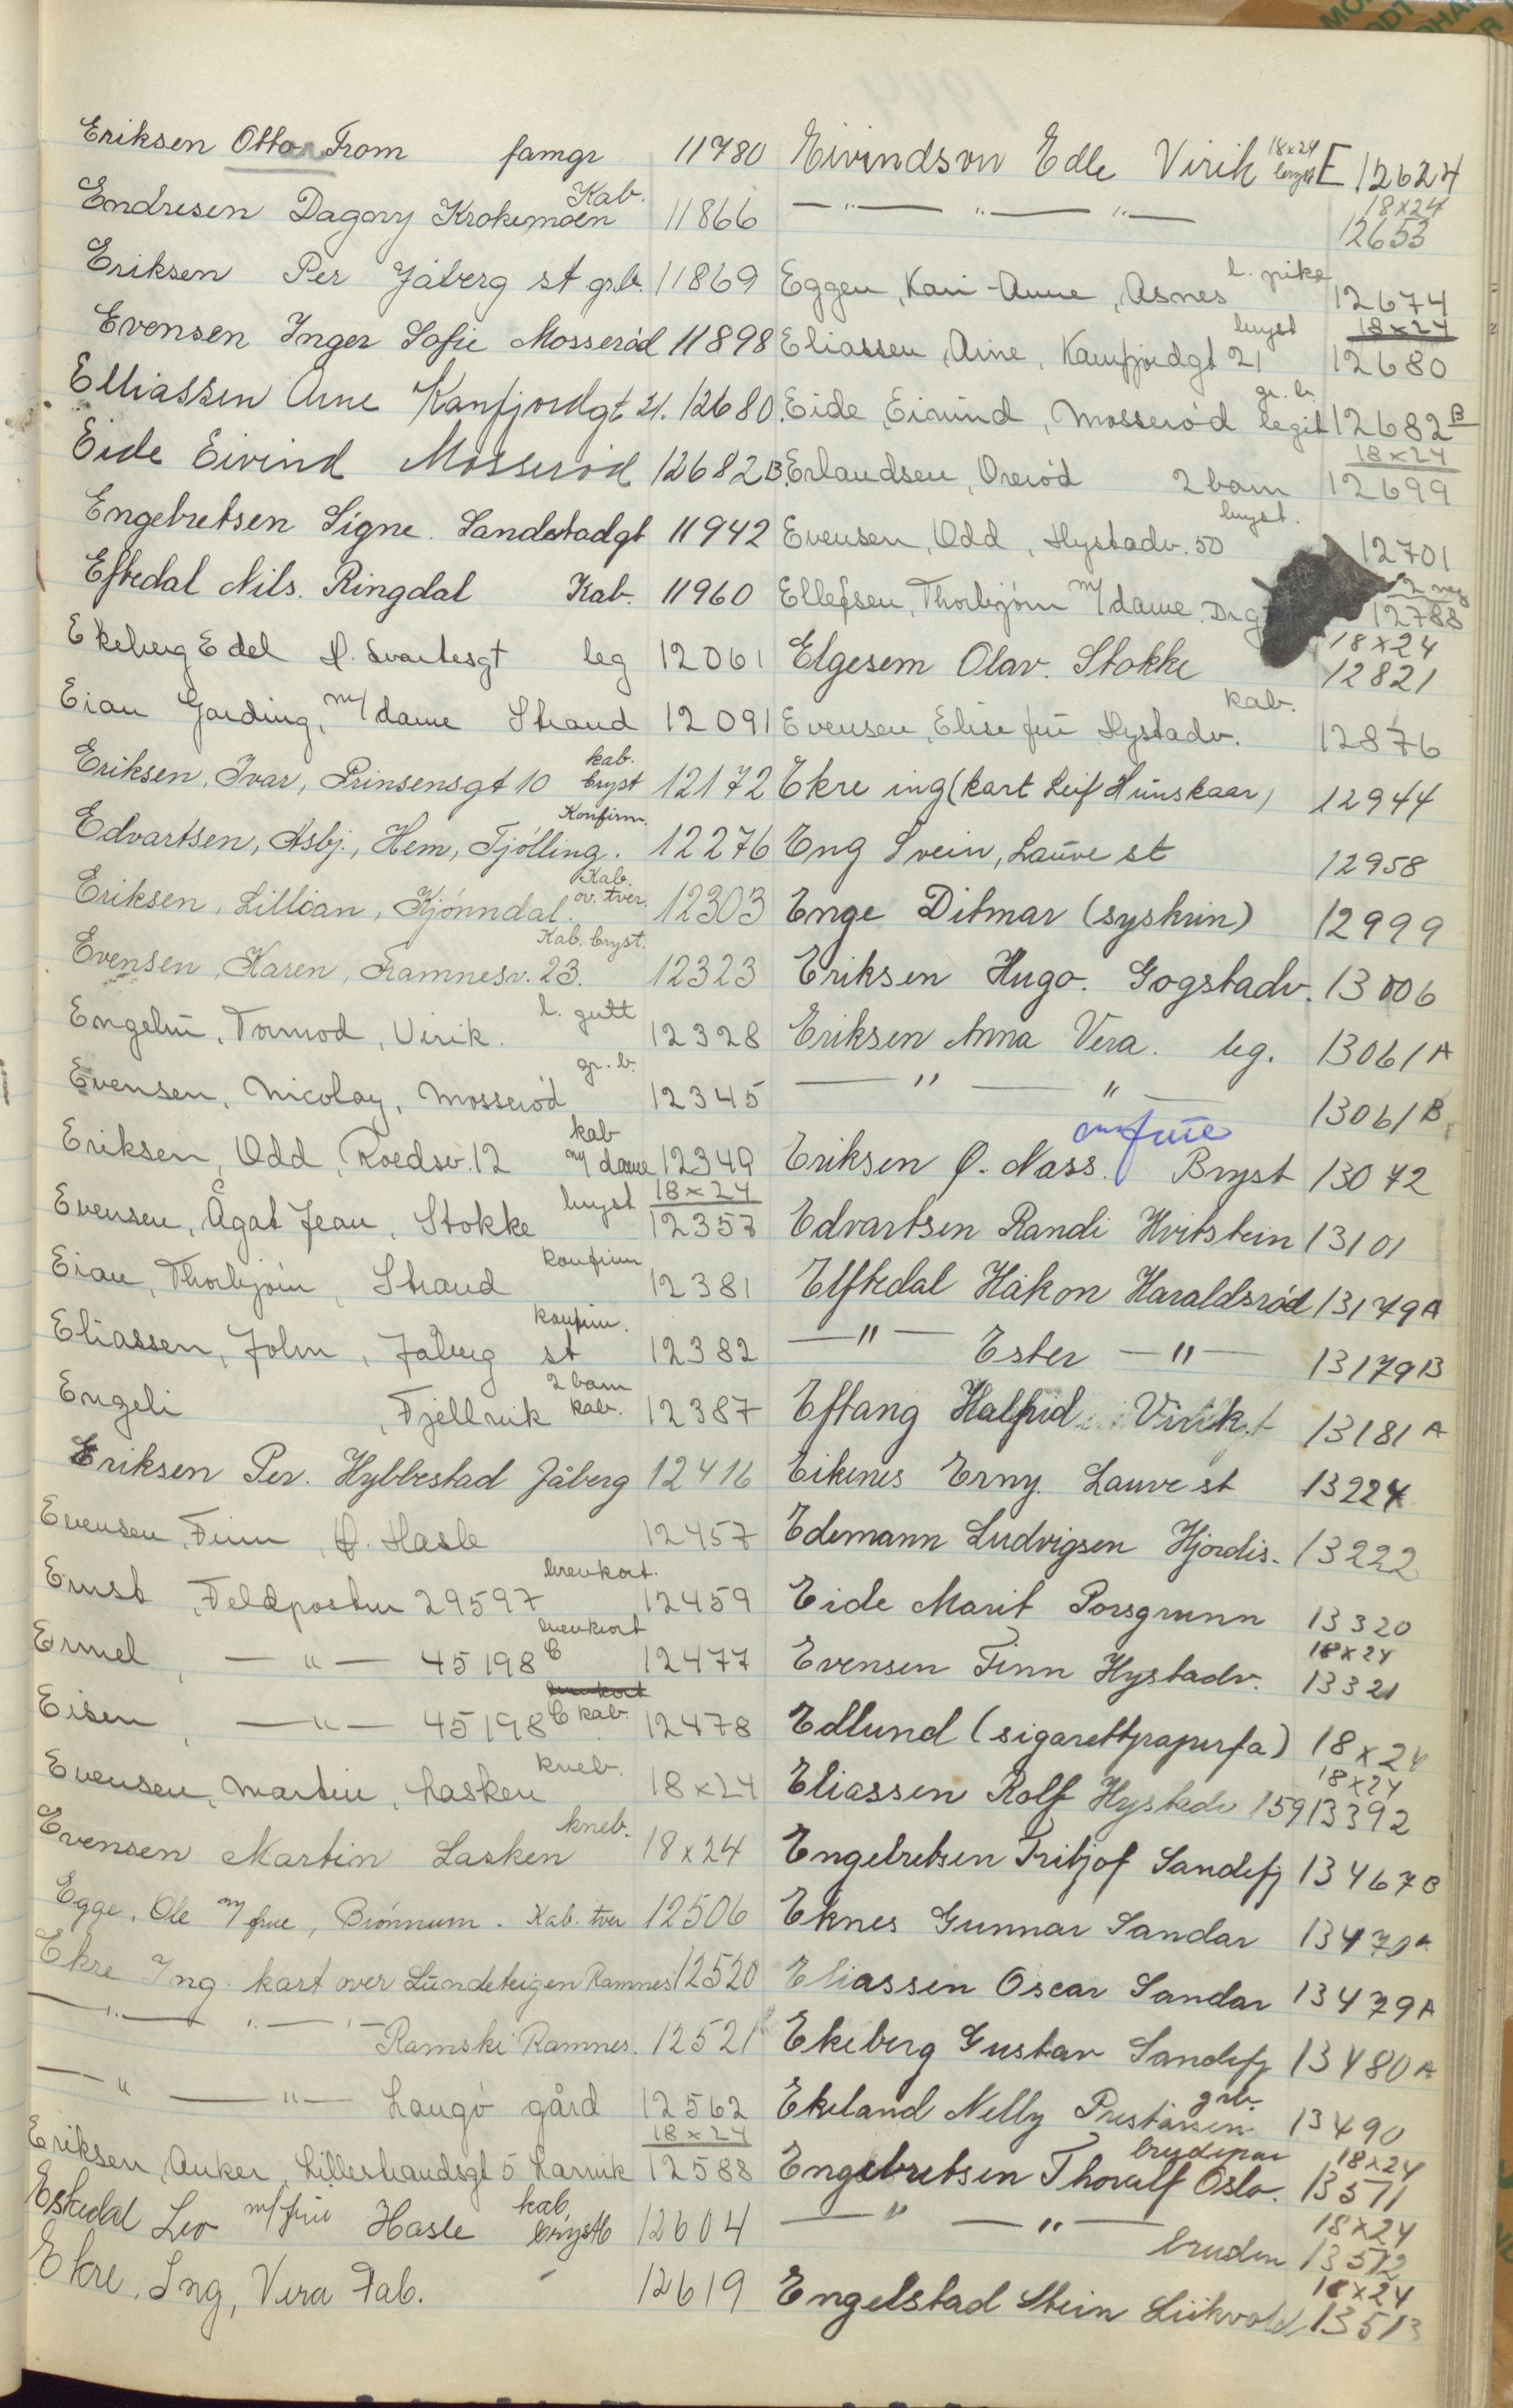 Eriksen Otto From famgr 11780
Endresen Dagny Krokemoen Kab. 11866
Eriksen Per Jåberg st gr.b. 11869
Evensen Inger Sofie Mosserød 11898
Elliassen Arne Kamfjordgt 21. 12680.
Eide Eivind Mosserød 12682 B.
Engebretsen Signe. Landstadgt 11942
Eftedal Nils. Ringdal Kab. 11960
Ekeberg Edel P. Svartesgt leg 12061
Eian Garding, m/dame Strand 12091
Eriksen, Ivar, Prinsensgt 10 kab. bryst 12172
Edvartsen, Asbj., Hem, Tjølling. Konfirm. 12276
Eriksen, Lillian, Kjønndal. Kab. ov. tver. 12303
Evensen, Karen, Framnesv. 23. Kab. bryst. 12323
Engelin, Tormod, Virik. l. gutt 12328
Evensen, Nicolay, Mosserød gr. b. 12345
Eriksen, Odd, Roedsv. 12 kab m/dame 12349
Evensen, Ågat Jean, Stokke bryst 18x24 12357
Eian, Thorbjørn, Strand konfirm 12381
Eliassen, John, Jåberg st konfirm. 12382
Engeli, Fjellvik 2 barn kab. 12387
Eriksen Per. Hybbestad Jåberg 12416
Evensen, Finn, Ø. Hasle 12457
Ernst, Feldpostnr 29597 brevkort. 12459
Ermel, — " — 45198 C brevkort 12477
Eisen, — " — 45198 C kab. 12478
Evensen, Martin, Lasken kneb. 18x24
Evensen Martin Lasken kneb. 18x24
Egge, Ole m/frue, Brønnum. Kab. tver 12506
Ekre Ing. kart over Lundeteigen Ramnes 12520
— " — " — " — Ramski Ramnes. 12521
— " — " — Langø gård 12562
Eriksen, Anker, Lillestrandsgt 5 Larvik 18x24 12588
Eskedal Leo m/frue Hasle kab. bryst 12604
Ekre, Ing, Vera Fab. 12619
Eivindson Edle Virik 18x24 bryst E 12624
— " — " — " — 18x24 12653
Eggen, Kari-Anne, Asnes l. pike 12674
Eliassen, Arne, Kamfjordgt 21 bryst 18x24 12680
Eide, Eivind, Mosserød gr. b. legit 12682 B
Erlandsen, Orerød 2 barn 18x24 12699
Evensen, Odd, Hystadv. 50 bryst. 12701
Ellefsen, Thorbjørn m/dame. 12788
Elgesem Olav. Stokke 18x24 12821
Evensen, Elise fru Hystadv. kab. 12876
Ekre ing (kart Leif Hunskaar) 12944
Eng Svein, Lauve st 12958
Enge Ditmar (syskrin) 12999
Eriksen Hugo. Gogstadv. 13006
Eriksen Anna Vera. leg. 13061 A
— " — " — 13061 B
Eriksen P. Nass. frue Bryst 13072
Edvartsen Randi Hvitstein 13101
Elfkedal Håkon Haraldsrød 13179 A
— " — Ester — " — 13179 B
Eftang Halfrid Virik. 13181 A
Eikenes Erny. Lauve st 13224
Edemann Ludvigsen Hjørdis. 13222
Eide Marit Porsgrunn 13320
Evensen Finn Hystadv. 18x24 13321
Edlund (sigarettpapirfa) 18x24
Eliassen Rolf Hystadv 159 18x24 13392
Engebretsen Fritjof Sandefj 13467 B
Eknes Gunnar Sandar 13470 A
Eliassen Oscar Sandar 13479 A
Ekeberg Gustav Sandefj 13480 A
Ekeland Nelly Preståsen grb. 13490
Engebretsen Thoralf Oslo. brudepar 18x24 13511
— " — " — bruden 18x24 13512
Engelstad Stein 18x24 13513